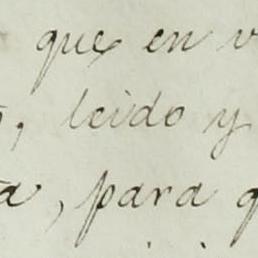 que en v
, leido y
a, para q